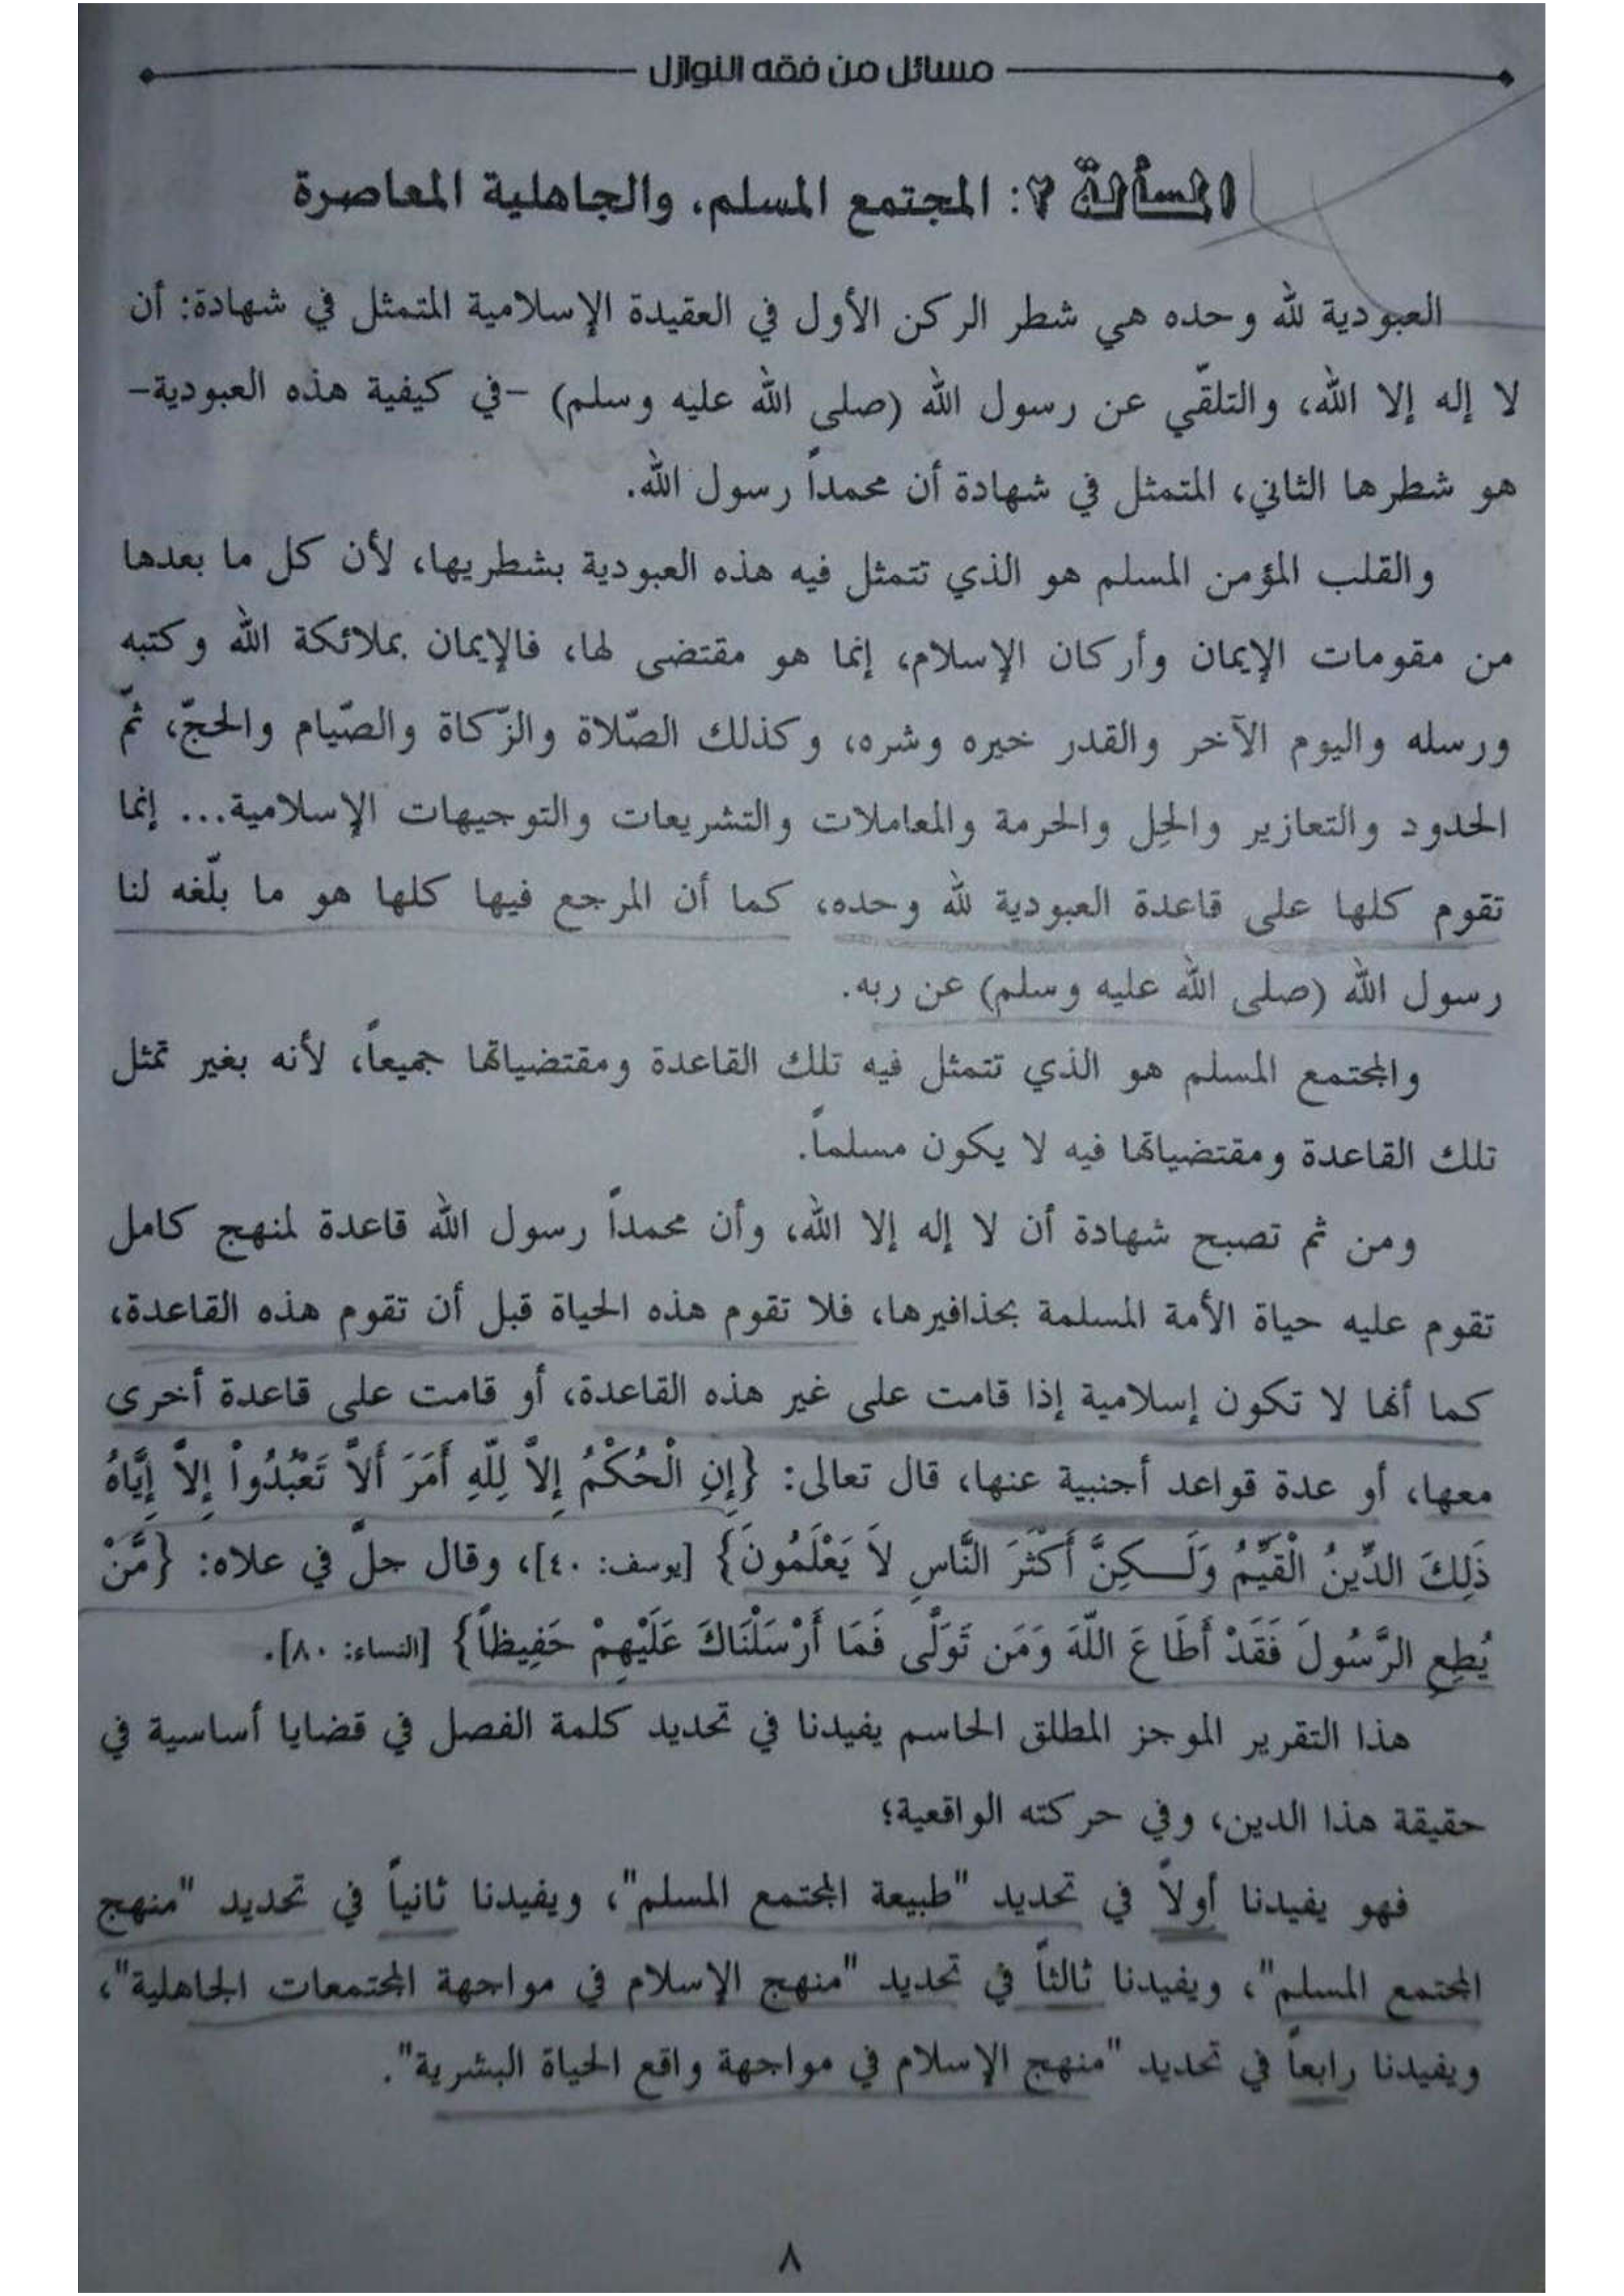 مسائل من فقه النوازل
المسألة ٢: المجتمع المسلم، والجاهلية المعاصرة
العبودية لله وحده هي شطر الركن الأول في العقيدة الإسلامية المتمثل في شهادة: أن
لا إله إلا الله، والتلقّي عن رسول الله (صلى الله عليه وسلم) -في كيفية هذه العبودية-
هو شطرها الثاني، المتمثل في شهادة أن محمداً رسول الله.
والقلب المؤمن المسلم هو الذي تتمثل فيه هذه العبودية بشطريها، لأن كل ما بعدها
من مقومات الإيمان وأركان الإسلام، إنما هو مقتضى لها، فالإيمان بملائكة الله وكتبه
ورسله واليوم الآخر والقدر خيره وشره، وكذلك الصّلاة والزّكاة والصّيام والحجّ، ثمّ
الحدود والتعازير والحِل والحرمة والمعاملات والتشريعات والتوجيهات الإسلامية... إنما
تقوم كلها على قاعدة العبودية لله وحده، كما أن المرجع فيها كلها هو ما بلّغه لنا
رسول الله (صلى الله عليه وسلم) عن ربه.
والمجتمع المسلم هو الذي تتمثل فيه تلك القاعدة ومقتضياتها جميعاً، لأنه بغير تمثل
تلك القاعدة ومقتضياتها فيه لا يكون مسلماً.
ومن ثم تصبح شهادة أن لا إله إلا الله، وأن محمداً رسول الله قاعدة لمنهج كامل
تقوم عليه حياة الأمة المسلمة بحذافيرها، فلا تقوم هذه الحياة قبل أن تقوم هذه القاعدة،
كما أنها لا تكون إسلامية إذا قامت على غير هذه القاعدة، أو قامت على قاعدة أخرى
معها، أو عدة قواعد أجنبية عنها، قال تعالى: {إِنِ الْحُكْمُ إِلاَّ لِلّهِ أَمَرَ أَلاَّ تَعْبُدُواْ إِلاَّ إِيَّاهُ
ذَلِكَ الدِّينُ الْقَيِّمُ وَلَـكِنَّ أَكْثَرَ النَّاسِ لاَ يَعْلَمُونَ} [يوسف: ٤٠]، وقال جلّ في علاه: {مَّنْ
يُطِعِ الرَّسُولَ فَقَدْ أَطَاعَ اللّهَ وَمَن تَوَلَّى فَمَا أَرْسَلْنَاكَ عَلَيْهِمْ حَفِيظاً} [النساء: ٨٠].
هذا التقرير الموجز المطلق الحاسم يفيدنا في تحديد كلمة الفصل في قضايا أساسية في
حقيقة هذا الدين، وفي حركته الواقعية؛
فهو يفيدنا أولاً في تحديد "طبيعة المجتمع المسلم"، ويفيدنا ثانياً في تحديد "منهج
المجتمع المسلم"، ويفيدنا ثالثاً في تحديد "منهج الإسلام في مواجهة المجتمعات الجاهلية"،
ويفيدنا رابعاً في تحديد "منهج الإسلام في مواجهة واقع الحياة البشرية".
٨